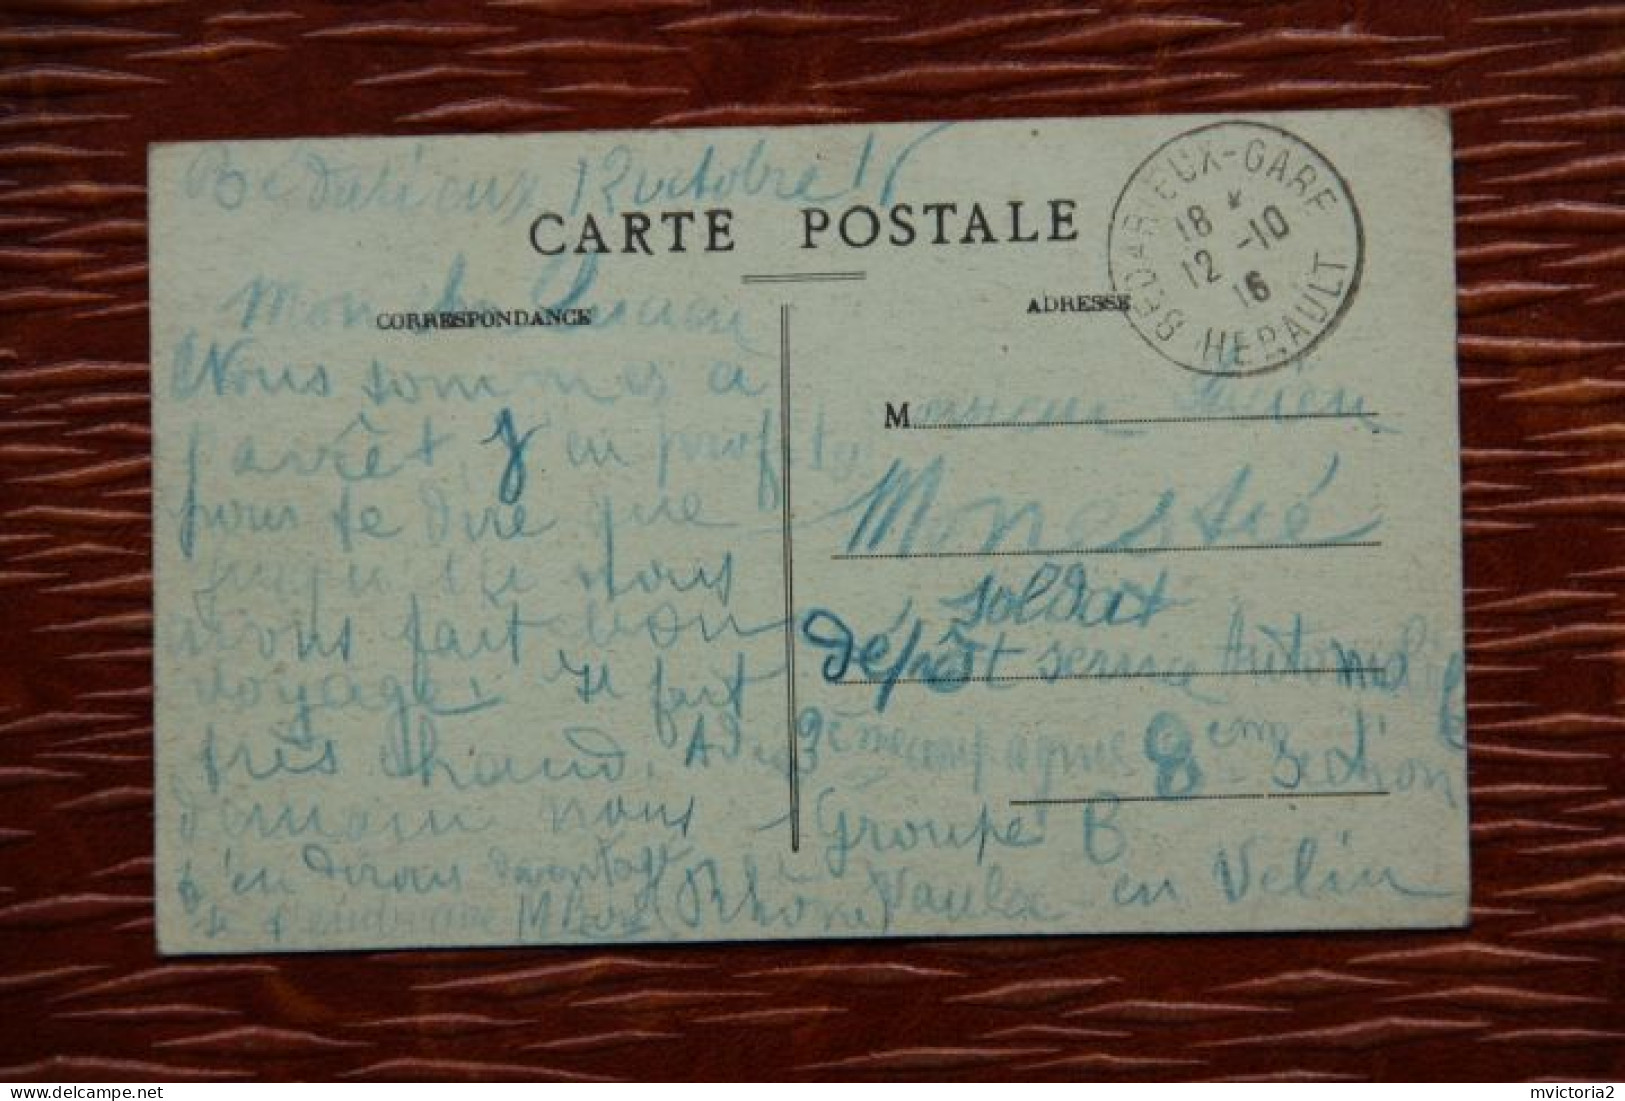 Bédarieux 12 octobre 16
CARTE POSTALE
BEDARIEUX-GARE
18 *
12 -10
16
HERAULT
Mon cher Lucien
CORRESPONDANCE
ADRESSE
Nous sommes à
l'arrêt, j'en profite
pour te dire que
jusqu'ici nous
avons fait bon
voyage. Il fait
très chaud. A
demain nous
t'en dirons davantage
Monsieur Lucien
Monestié
soldat
dépôt service Automobile
9ème compagnie 8ème section
Groupe B
Vaulx-en Velin
(Rhône)
mvictoria2